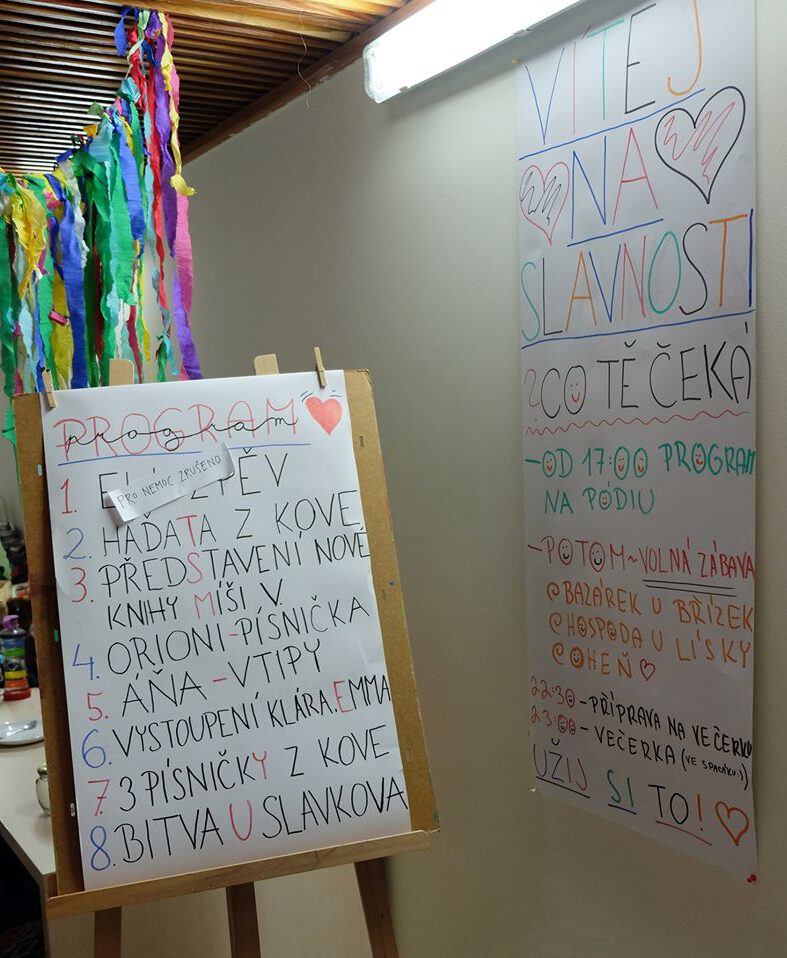 PROGRAM
program
1. ZPĚV
PRO NEMOC ZRUŠENO
2. HÁĎATA Z KOVE
3. PŘEDSTAVENÍ NOVÉ
KNIHY MÍŠI V.
4. ORIONI-PÍSNIČKA
5. ÁŇA-VTIPY
6. VYSTOUPENÍ KLÁRA.EMMA
7. 3 PÍSNIČKY Z KOVE
8. BITVA U SLAVKOVA
VÍTEJ
NA
SLAVNOSTI
?CO TĚ ČEKÁ
-OD 17:00 PROGRAM
NA PÓDIU
-POTOM~VOLNÁ ZÁBAVA
@BAZÁREK U BŘÍZEK
@HOSPODA U LÍSKY
@OHEŇ♡
22:30-PŘÍPRAVA NA VEČERKU
23:00-VEČERKA (VE SPACÁKU:)
UŽIJ SI TO!